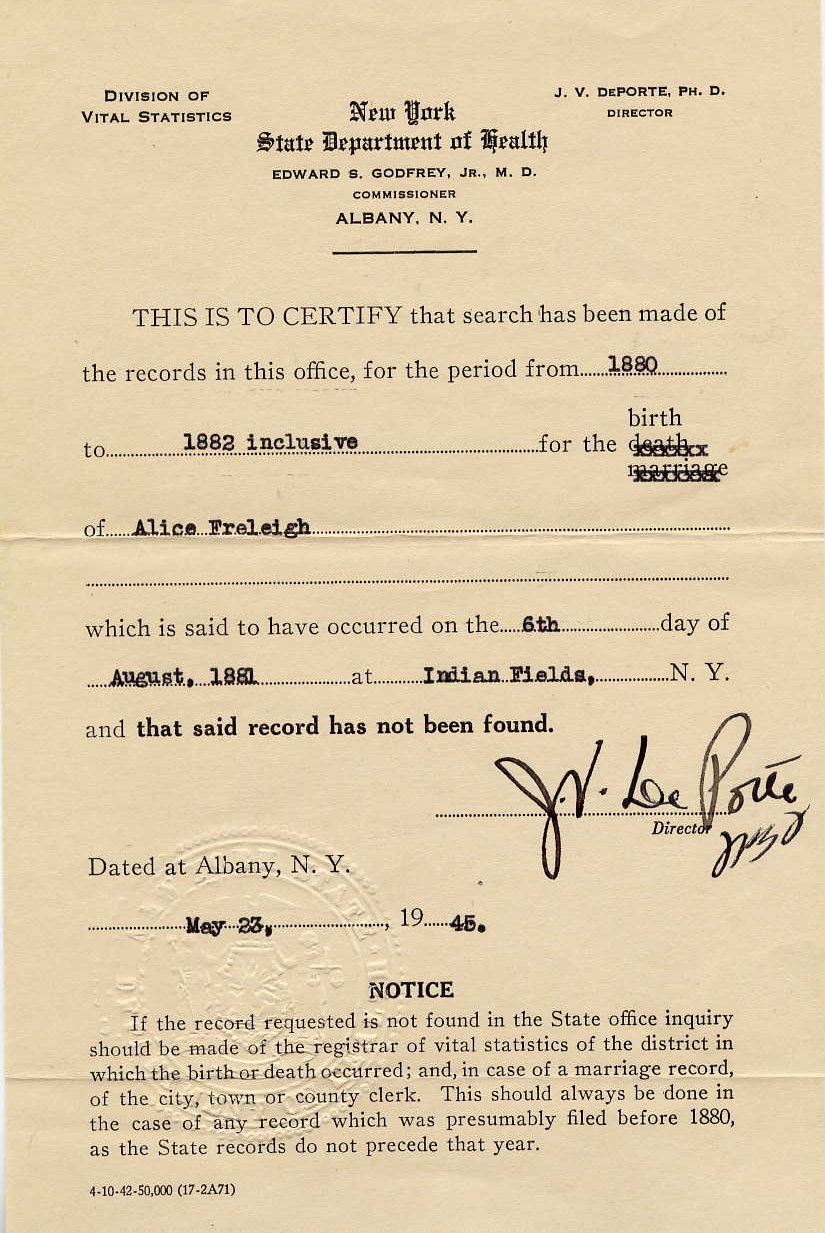 DIVISION OF
VITAL STATISTICS
J. V. DEPORTE, PH. D.
DIRECTOR
New York
State Department of Health
EDWARD S. GODFREY, JR., M. D.
COMMISSIONER
ALBANY, N. Y.
THIS IS TO CERTIFY that search has been made of
the records in this office, for the period from 1880
birth
to 1882 inclusive for the death
marriage
of Alice Freleigh
which is said to have occurred on the 6th day of
August, 1881 at Indian Fields, N. Y.
and that said record has not been found.
J. V. De Porte
Director
Dated at Albany, N. Y.
May 23, 1945.
NOTICE
If the record requested is not found in the State office inquiry
should be made of the registrar of vital statistics of the district in
which the birth or death occurred; and, in case of a marriage record,
of the city, town or county clerk. This should always be done in
the case of any record which was presumably filed before 1880,
as the State records do not precede that year.
4-10-42-50,000 (17-2A71)